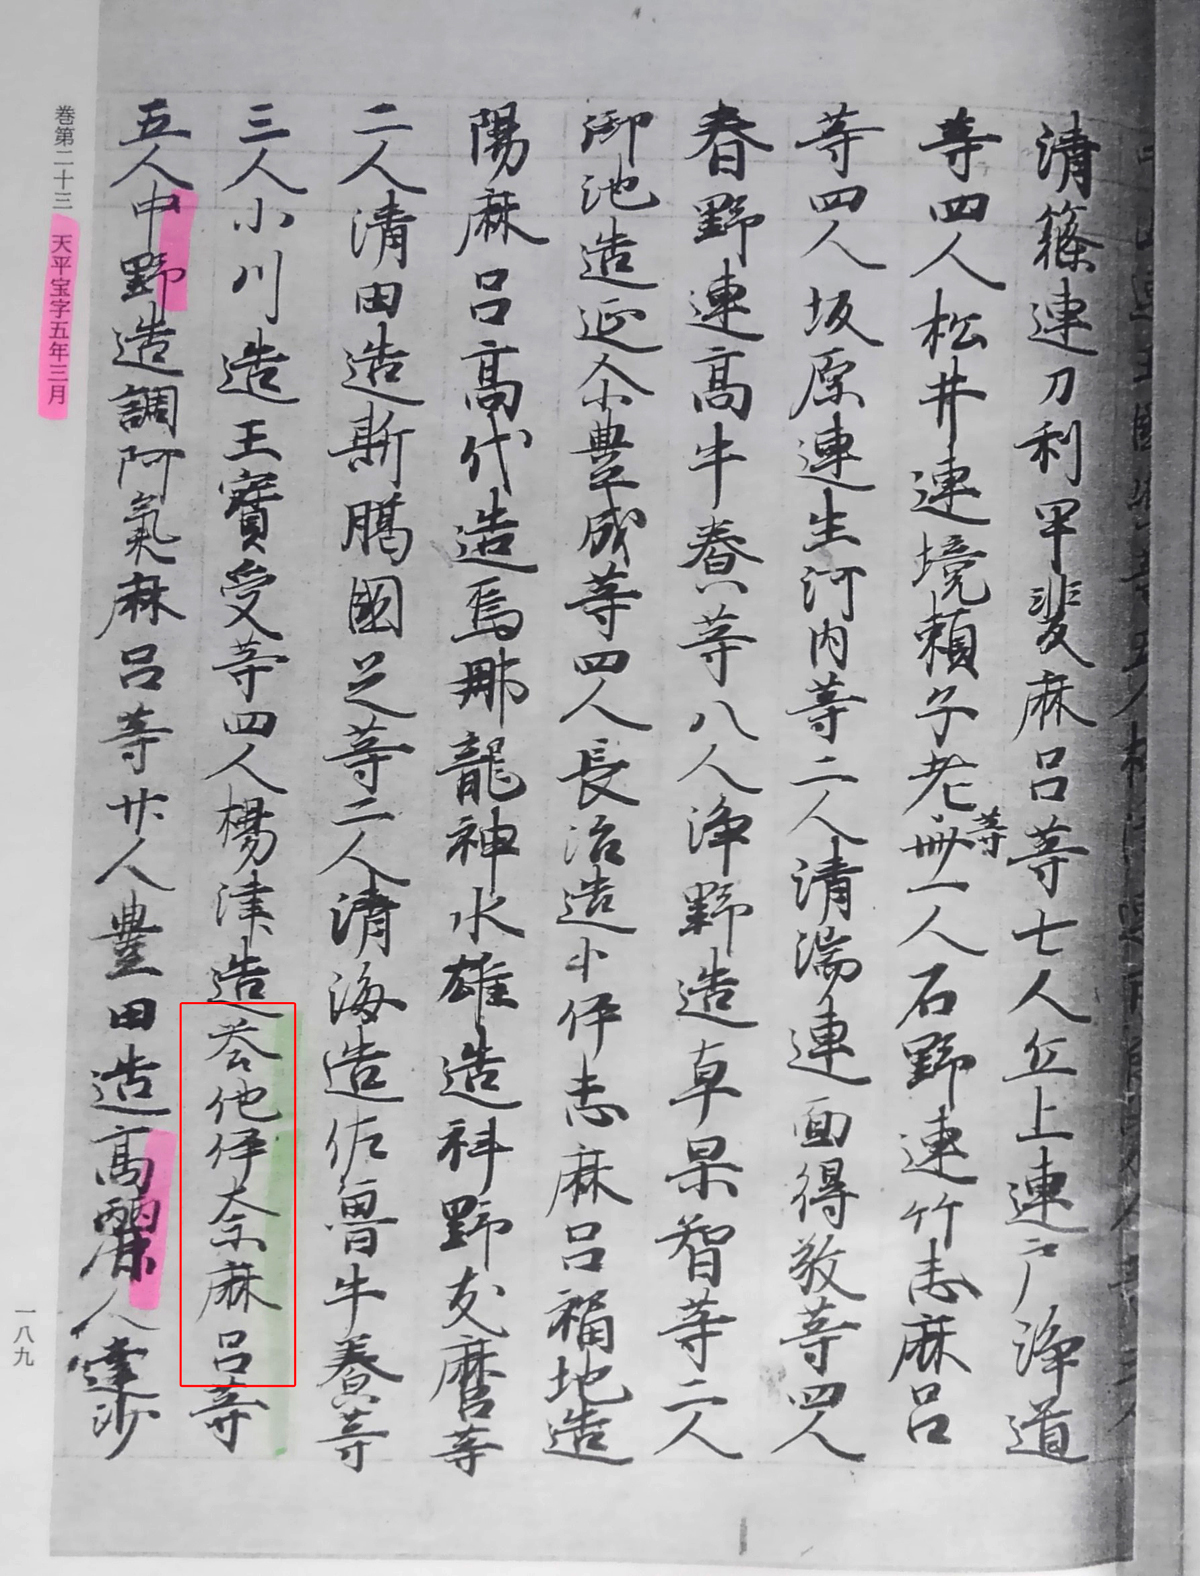 清篠連刀利甲斐麻呂等七人丘上連戸浄道
等四人松井連境頼子老等卌一人石野連竹志麻呂
等四人坂原連生河内等二人清湍連面得敬等四人
春野連高牛養等八人浄野造卓杲智等二人
御池造延尒豊成等四人長沼造小伊志麻呂福地造
陽麻呂高代造烏那龍神水雄造科野友麿等
二人清田造斯䐁國芝等二人清海造佐魯牛養等
三人小川造王寶受等四人楊津造荅他伊奈麻呂等
五人中野造調阿氣麻呂等廿人豊田造高麗人達沙
巻第二十三 天平宝字五年三月
一八九